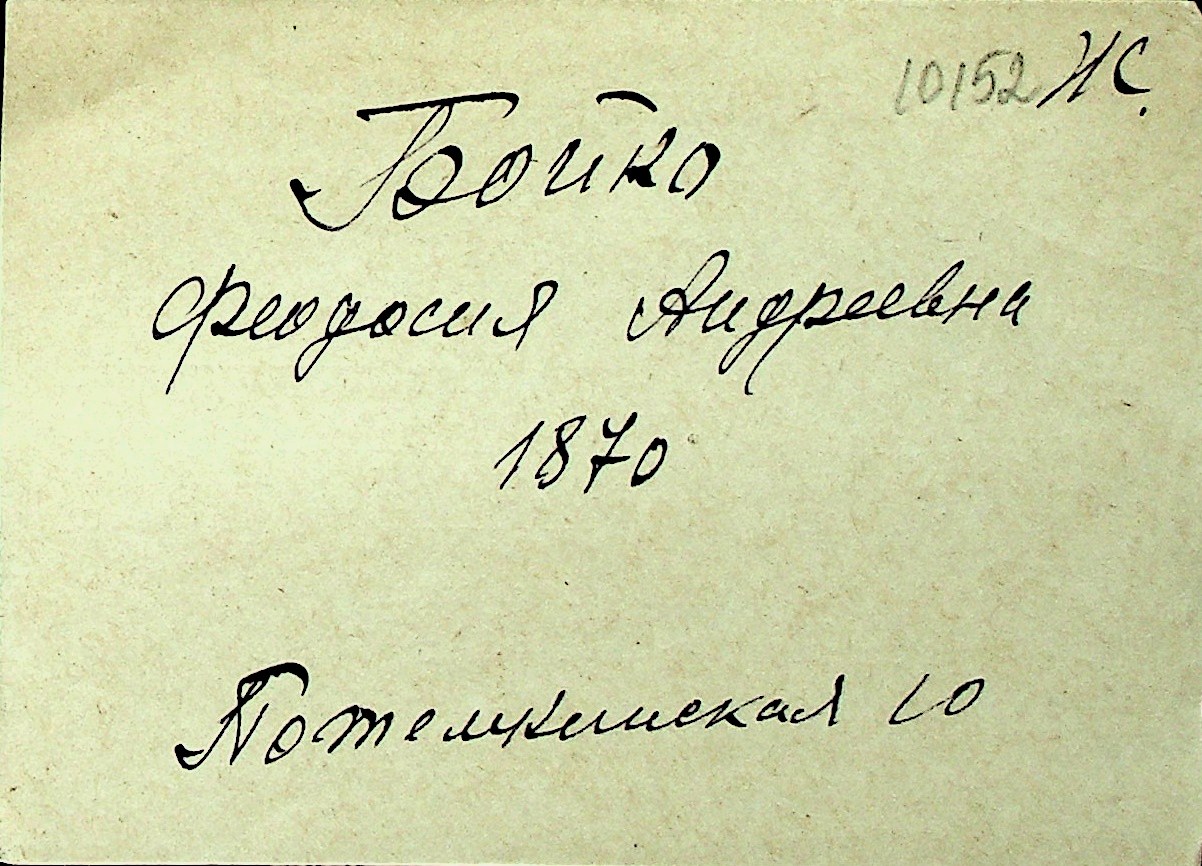 10152 Ж.
Бойко
Феодосия Андреевна
1870
Потемкинская 10